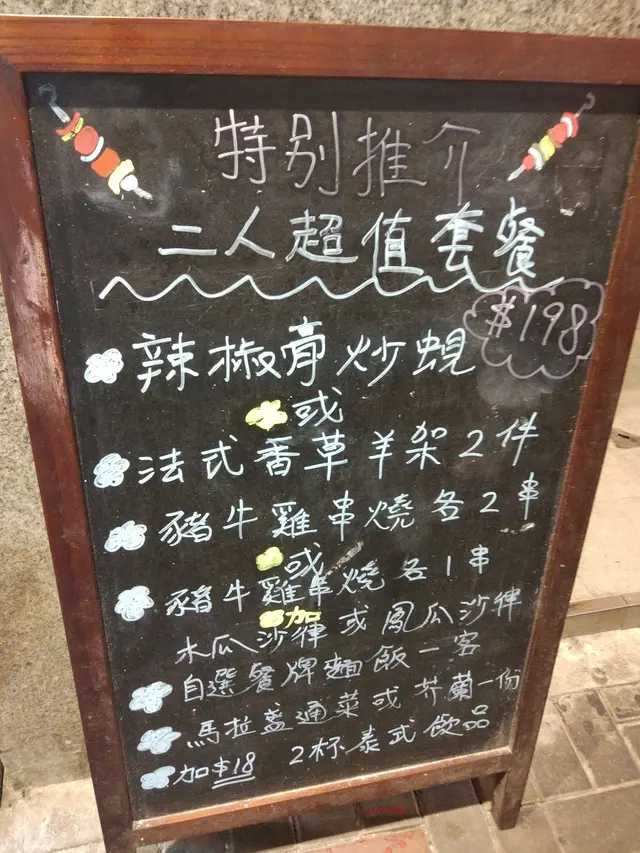 特别推介
二人超值套餐
$198
辣椒膏炒蜆
或
法式香草羊架2件
豬牛雞串燒各2串
或
豬牛雞串燒各1串
加
木瓜沙律或鳳瓜沙律
自選餐牌麵飯一客
馬拉盞通菜或芥蘭一份
加$18 2杯泰式飲品